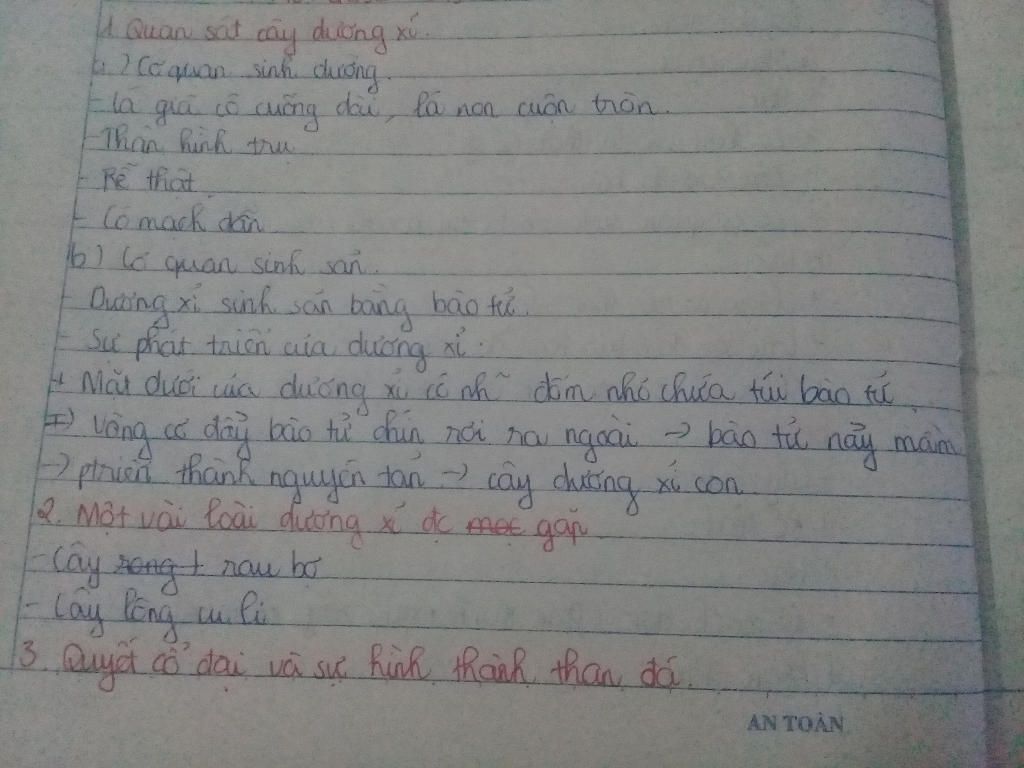 1. Quan sát cây dương xỉ.
a.) Cơ quan sinh dưỡng.
- Lá già có cuống dài, lá non cuộn tròn.
- Thân hình trụ
- Rễ thật
- Có mạch dẫn
b) Cơ quan sinh sản.
- Dương xỉ sinh sản bằng bào tử.
- Sự phát triển của dương xỉ:
+ Mặt dưới của dương xỉ có nh~ đốm nhỏ chứa túi bào tử.
+) Vòng cơ đẩy bào tử chín rơi ra ngoài → bào tử nảy mầm
→ ptriển thành nguyên tản → cây dương xỉ con
2. Một vài loài dương xỉ đc mọc gặp
- Cây rong + rau bợ
- Cây lông cu li
3. Quyết cổ đại và sự hình thành than đá.
AN TOÀN